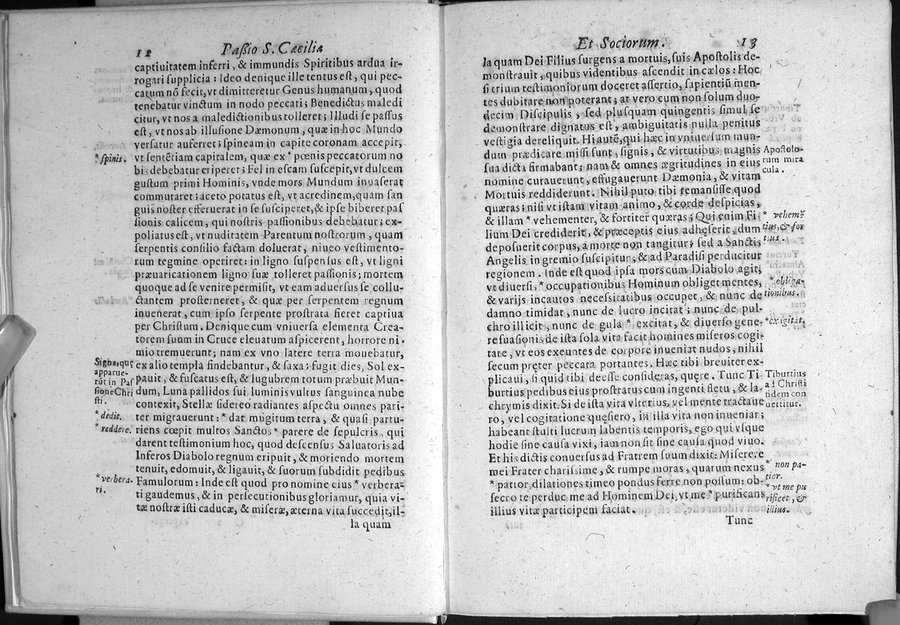 12 Paßio S. Cæcilia
captiuitatem inferri, & immundis Spiritibus ardua ir-
rogari supplicia: Ideo denique ille tentus est, qui pec-
catum nō fecit, vt dimitteretur Genus humanum, quod
tenebatur vinctum in nodo peccati; Benedictus maledi
citur, vt nos a maledictionibus tolleret; Illudi se passus
est, vt nos ab illusione Dæmonum, quæ in hoc Mundo
versatur auferret; spineam in capite coronam accepit,
*spinis. vt sentētiam capitalem, quæ ex * pœnis peccatorum no
bis debebatur eriperet; Fel in escam suscepit, vt dulcem
gustum primi Hominis, vnde mors Mundum inuaserat
commutaret: aceto potatus est, vt acredinem, quam san
guis noster efferuerat in se susciperet, & ipse biberet pas
sionis calicem, qui nostris passionibus debebatur; ex-
poliatus est, vt nuditatem Parentum nostrorum, quam
serpentis consilio factam doluerat, niueo vestimento-
rum tegmine operiret: in ligno suspensus est, vt ligni
præuaricationem ligno suæ tolleret passionis; mortem
quoque ad se venire permisit, vt eam aduersus se collu-
ctantem prosterneret, & quæ per serpentem regnum
inuenerat, cum ipso serpente prostrata fieret captiua
per Christum. Denique cum vniuersa elementa Crea-
torem suum in Cruce eleuatum aspicerent, horrore ni-
mio tremuerunt; nam ex vno latere terra mouebatur,
Signa, quę ex alio templa findebantur, & saxa; fugit dies, Sol ex-
apparue- pauit, & fuscatus est, & lugubrem totum præbuit Mun-
rūt in Pas dum, Luna pallidos sui luminis vultus sanguinea nube
sione Chri contexit, Stellæ sidereo radiantes aspectu omnes pari-
sti.
*dedit. ter migrauerunt: * dat mugitum terra, & quasi partu-
*reddere. riens cœpit multos Sanctos * parere de sepulcris, qui
darent testimonium hoc, quod descensus Saluatoris ad
Inferos Diabolo regnum eripuit, & moriendo mortem
tenuit, edomuit, & ligauit, & suorum subdidit pedibus
*verbera- Famulorum: Inde est quod pro nomine eius * verbera-
ri. ti gaudemus, & in persecutionibus gloriamur, quia vi-
tæ nostræ isti caducæ, & miseræ, æterna vita succedit, il-
la quam
Et Sociorum. 13
la quam Dei Filius surgens a mortuis, suis Apostolis de-
monstrauit, quibus videntibus ascendit in cælos: Hoc
si trium testimoniorum doceret assertio, sapientiū men-
tes dubitare non poterant; at vero cum non solum duo-
decim Discipulis, sed plusquam quingentis simul se
demonstrare dignatus est, ambiguitatis nulla penitus
vestigia dereliquit. Hi autē, qui hæc in vniuersum mun-
dum prædicare missi sunt, signis, & virtutibus magnis Apostolo-
sua dicta firmabant; nam & omnes ægritudines in eius rum mira
nomine curauerunt, effugauerunt Dæmonia, & vitam cula.
Mortuis reddiderunt. Nihil puto tibi remansisse quod
quæras; nisi vt istam vitam animo, & corde despicias,
& illam * vehementer, & fortiter quæras; Qui enim Fi- * vehemē
lium Dei crediderit, & præceptis eius adheserit, dum tius, & for
deposuerit corpus, a morte non tangitur; sed a Sanctis tius.
Angelis in gremio suscipitur, & ad Paradisi perducitur
regionem. Inde est quod ipsa mors cum Diabolo agit,
vt diuersis * occupationibus Hominum obliget mentes, *obliga-
& varijs incautos necessitatibus occupet, & nunc de tionibus.
damno timidat, nunc de lucro incitat; nunc de pul-
chro illicit, nunc de gula * excitat, & diuerso gene- *exigitat.
re suasionis de ista sola vita facit homines miseros cogi-
tare, vt eos exeuntes de corpore inueniat nudos, nihil
secum præter peccata portantes. Hæc tibi breuiter ex-
plicaui, si quid tibi deesse consideras, quęre. Tunc Ti Tiburtius
burtius pedibus eius prostratus cum ingenti fletu, & la- ad Christi
chrymis dixit: Si de ista vita vlterius, vel mente tractaue fidem con
ro, vel cogitatione quęsiero, in illa vita non inueniar; uertitur.
habeant stulti lucrum labentis temporis, ego qui vsque
hodie sine causa vixi, iam non sit sine causa quod viuo.
Et his dictis conuersus ad Fratrem suum dixit: Miserere
mei Frater charissime, & rumpe moras, quarum nexus * non pa-
* patior, dilationes timeo pondus ferre non possum: ob- tior.
secro te perduc me ad Hominem Dei, vt me * purificans * vt me pu
illius vitæ participem faciat. rificet, &
illius.
Tunc